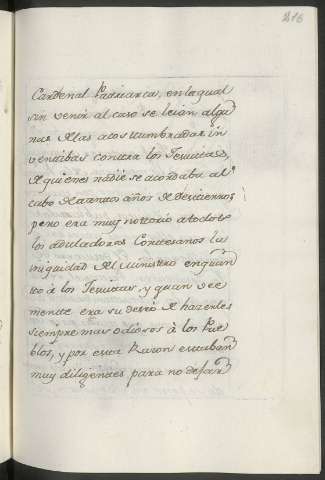 216
Cardenal Patriarca, en la qual
sin venir al caso se leian algu
nas de las acostumbradas in
vectibas contra los Jesuitas,
de quienes nadie se acordaba al
cabo de tantos años de destierro;
pero era muy nottorio a todos
los aduladores Cortesanos la
iniquidad del Ministro en quan
tto à los Jesuitas, y quan vee
mentte era su deseo de hazerles
siempre mas odiosos à los Pue
blos, y por esta Razon estaban
muy diligentes para no dejar